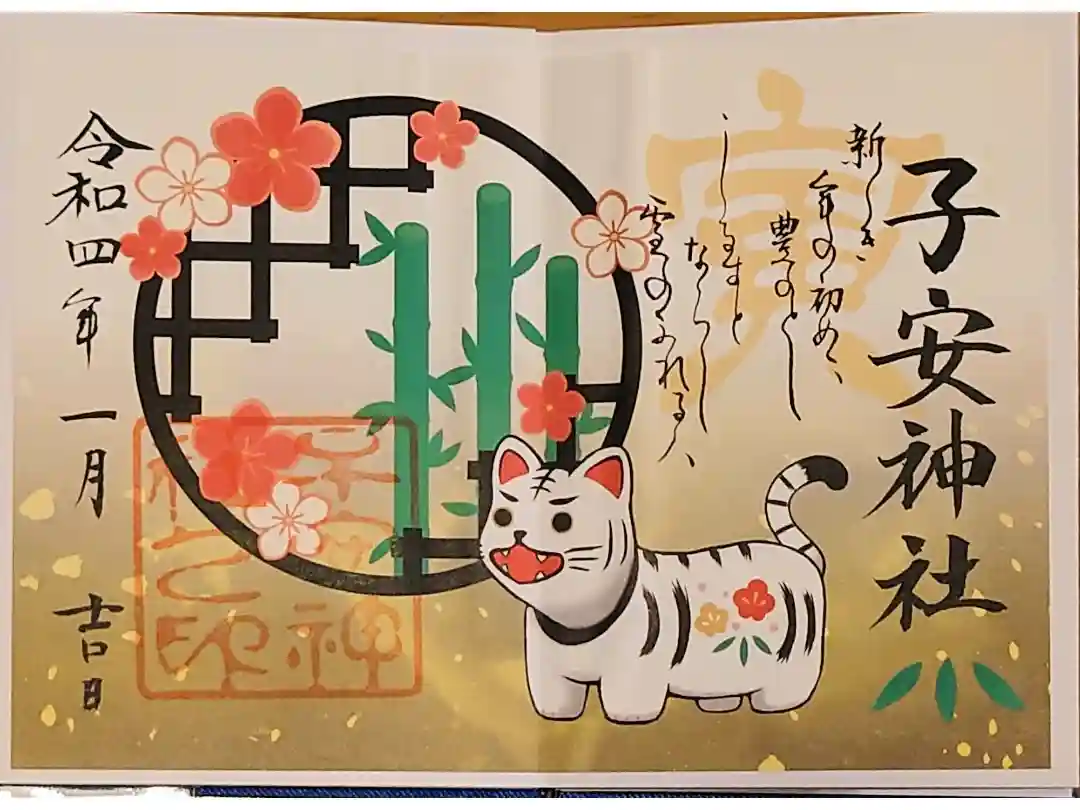 子安神社
寅
新しき
年の初めに
豊のとし
しるすと
ならし
雪のふれるハ
令和四年 一月 吉日
子安神
社之印